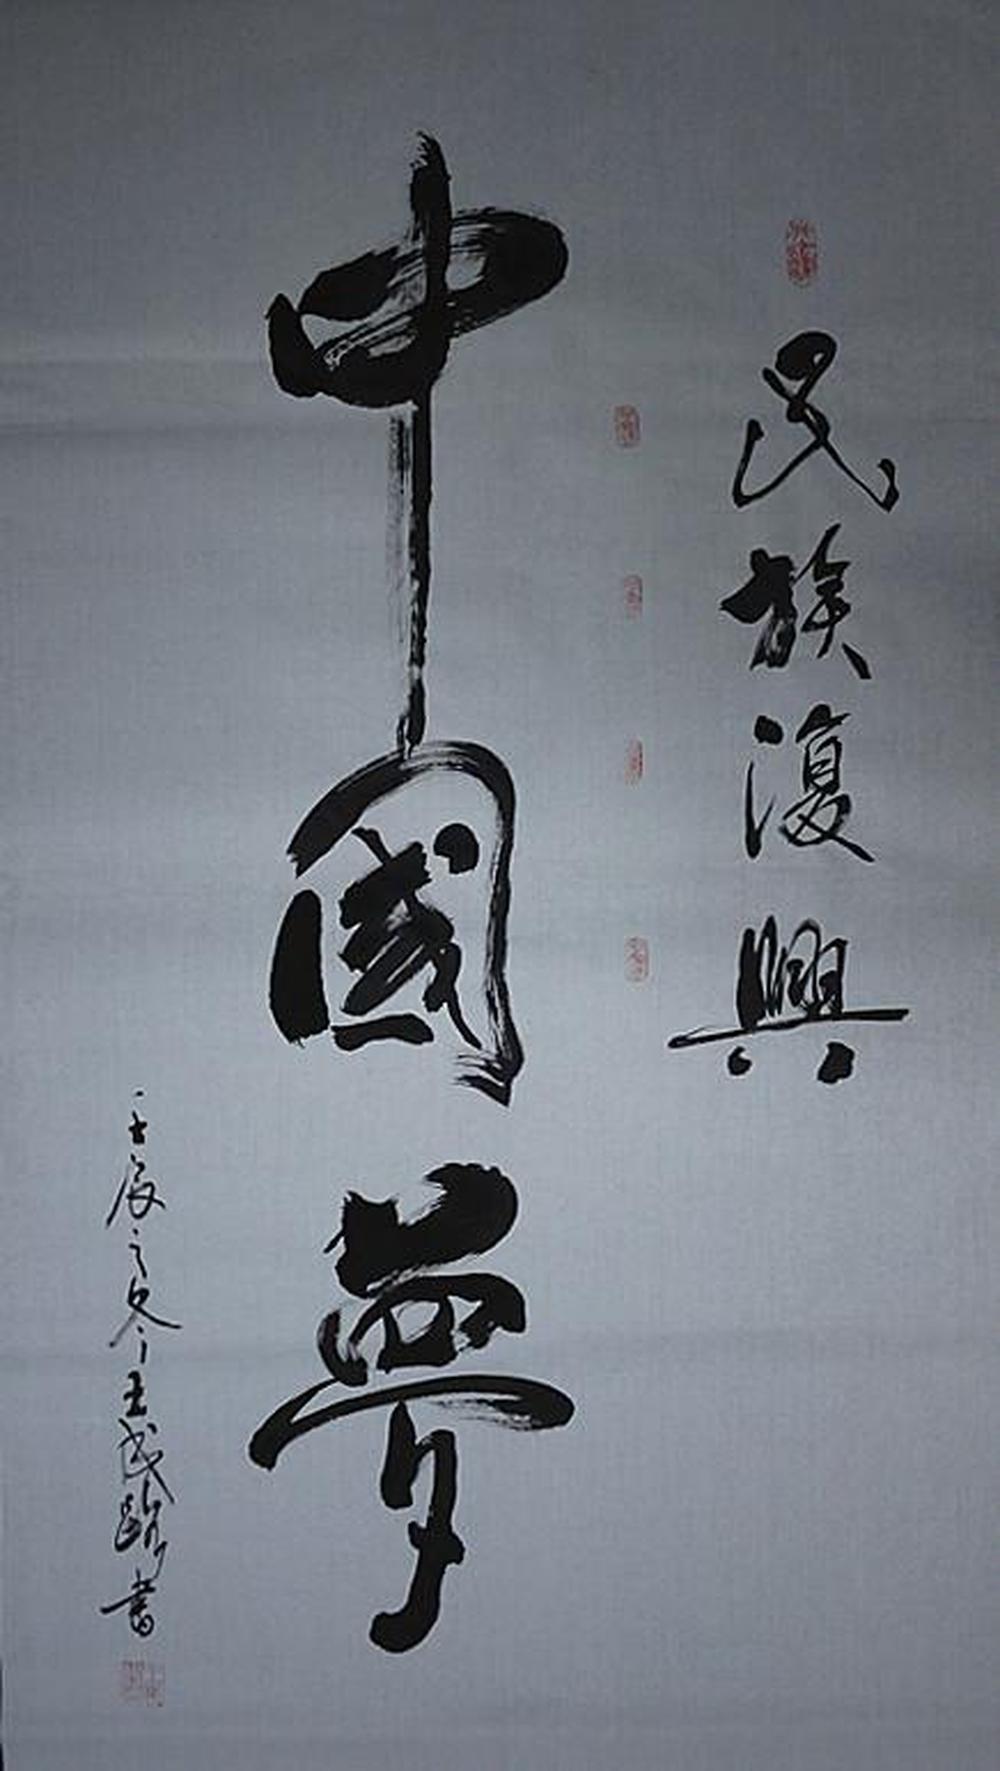 民族復興
中國夢
壬辰之冬王成龄書